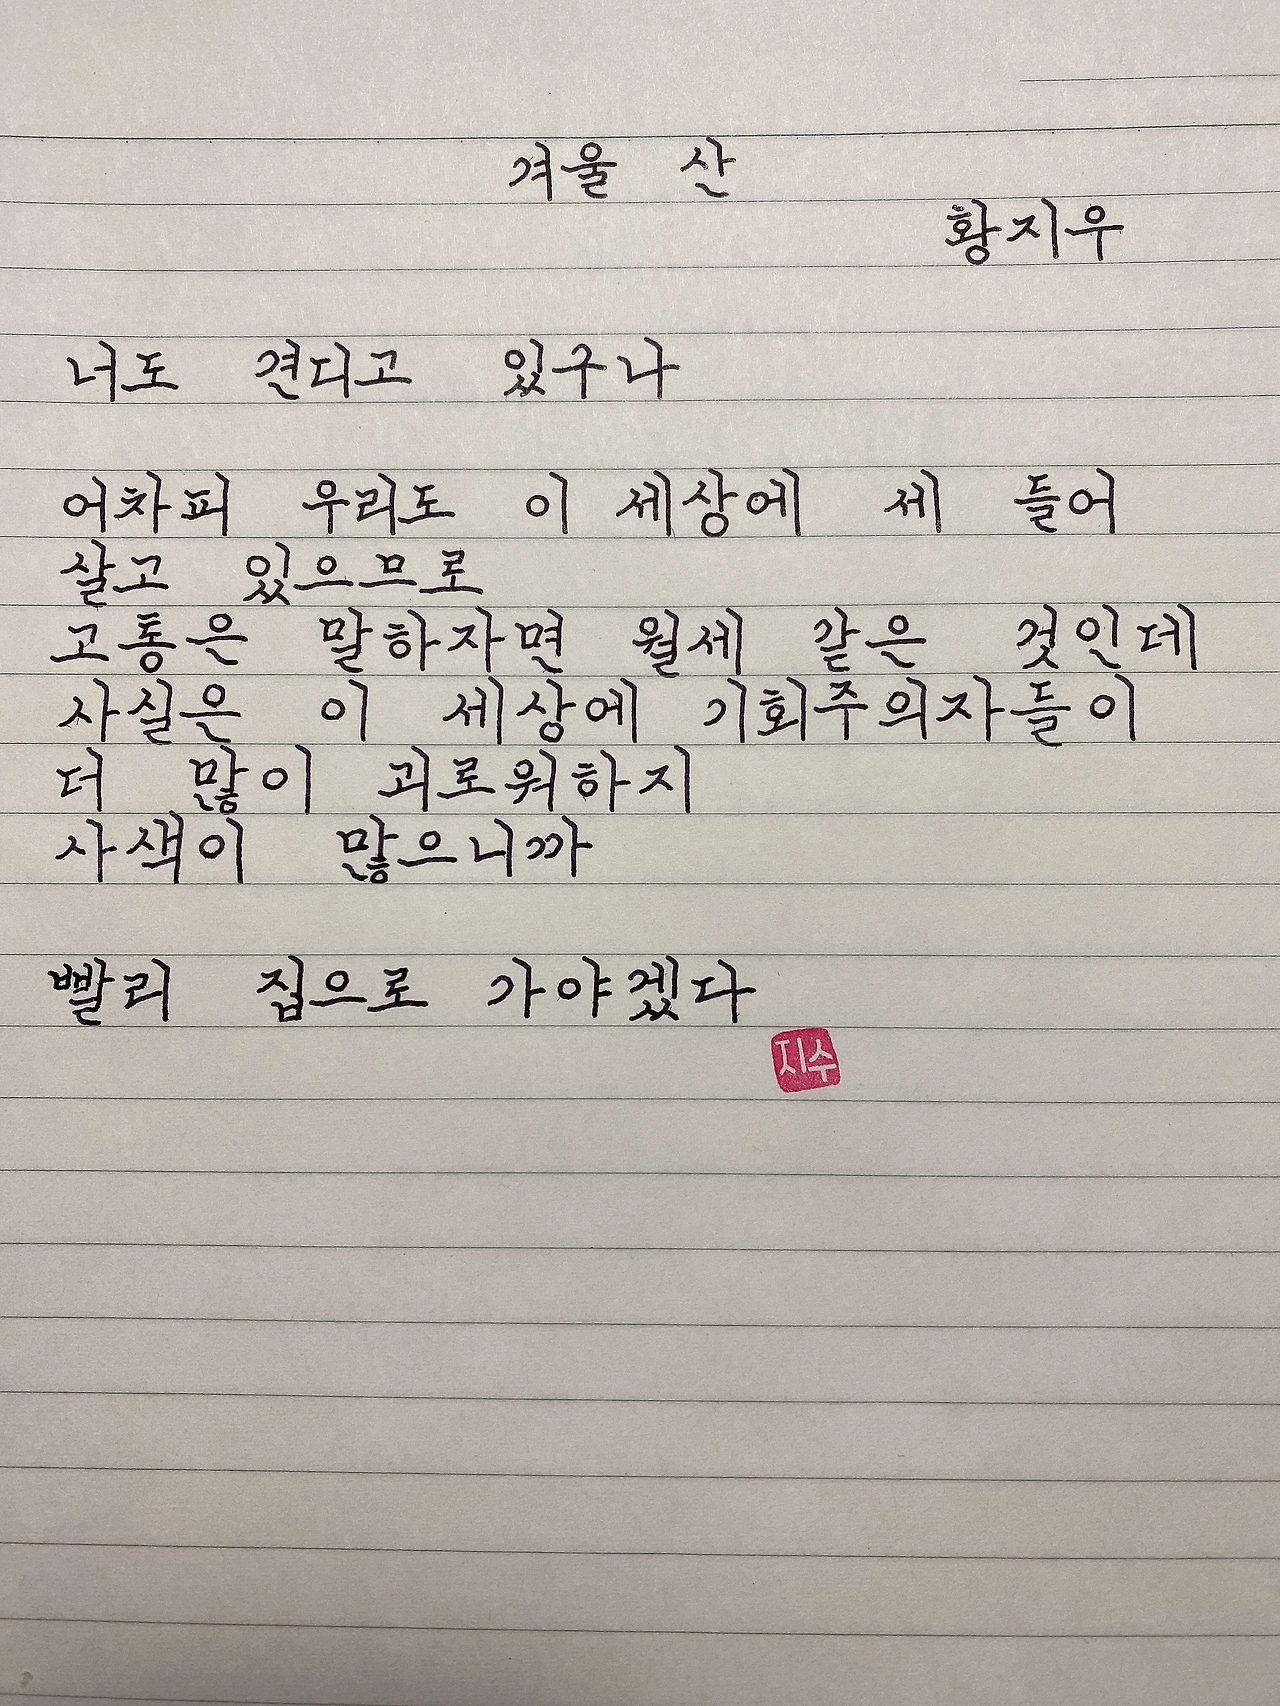 겨울 산
황지우
너도 견디고 있구나
어차피 우리도 이 세상에 세 들어
살고 있으므로
고통은 말하자면 월세 같은 것인데
사실은 이 세상에 기회주의자들이
더 많이 괴로워하지
사색이 많으니까
빨리 집으로 가야겠다
지수